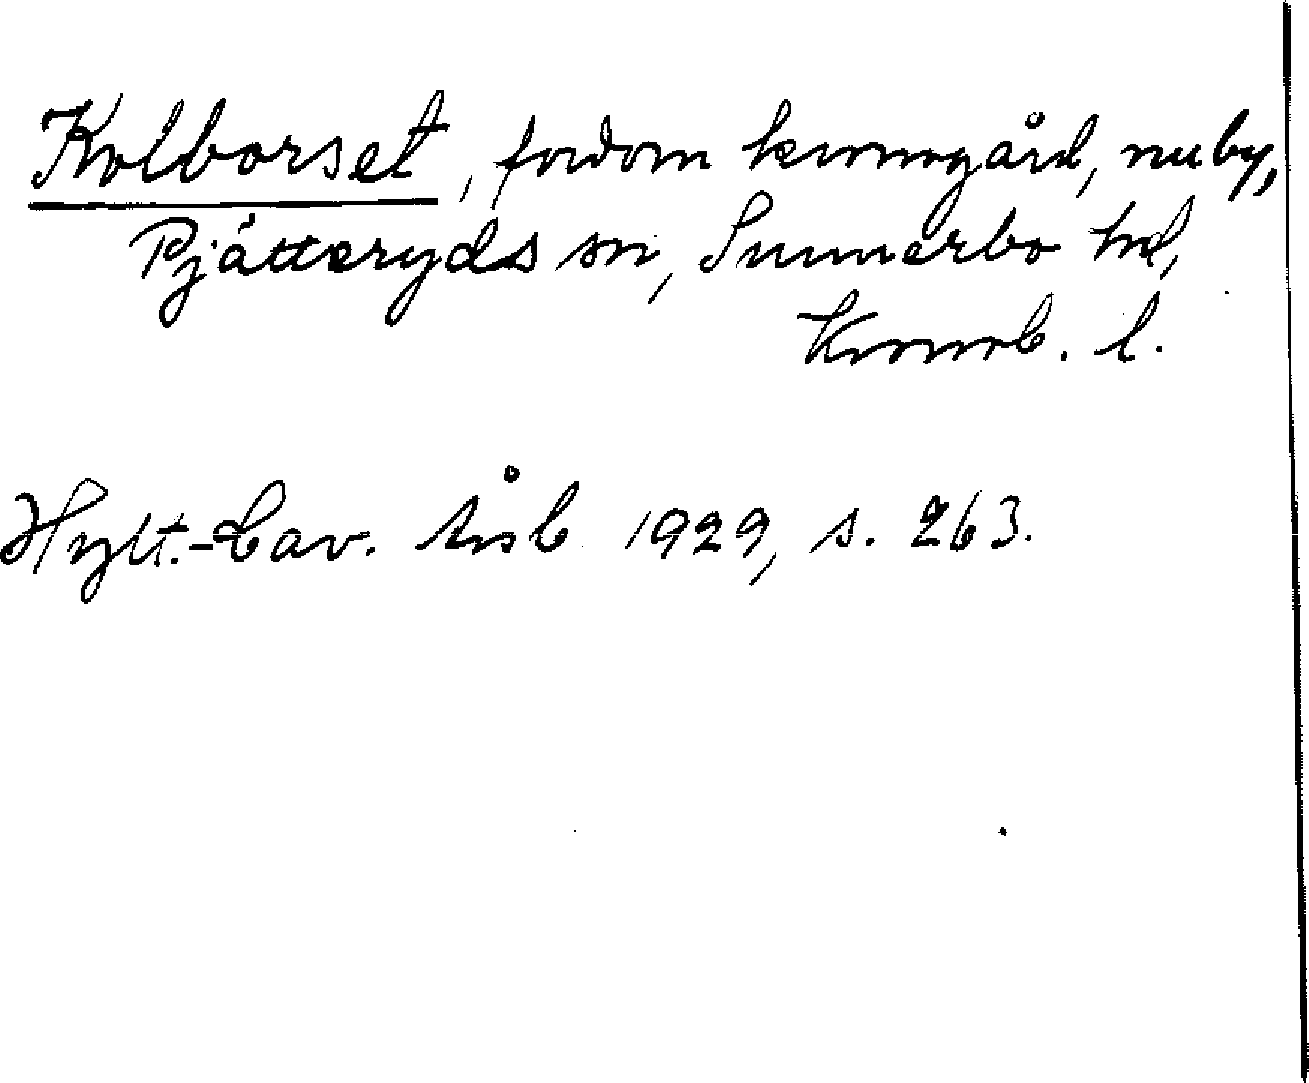 Kolborset, fordom kronogård, nu by,
Pjätteryds sn, Sunnerbo hd,
Kronob. l.
Hylt.-Cav. årsb 1929, s. 263.